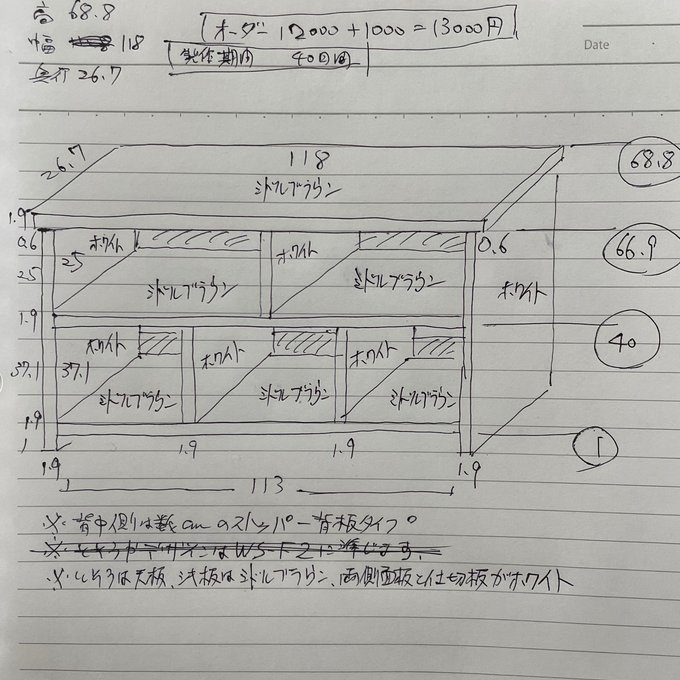 高 68.8
幅 118
奥行 26.7
オーダー 12000+1000=13000円
製作期間 40日間
Date
26.7
118
ミドルブラウン
68.8
1.9
0.6
ホワイト
ホワイト
0.6
66.9
25
25
ミドルブラウン
ミドルブラウン
ホワイト
1.9
40
ホワイト
ホワイト
ホワイト
37.1
37.1
ミドルブラウン
ミドルブラウン
ミドルブラウン
1.9
1
1
1.9
1.9
1.9
1.9
113
※背中側は数cmのストッパー背板タイプ。
※いろは天板、シキ板はミドルブラウン、両側面板と仕切板がホワイト